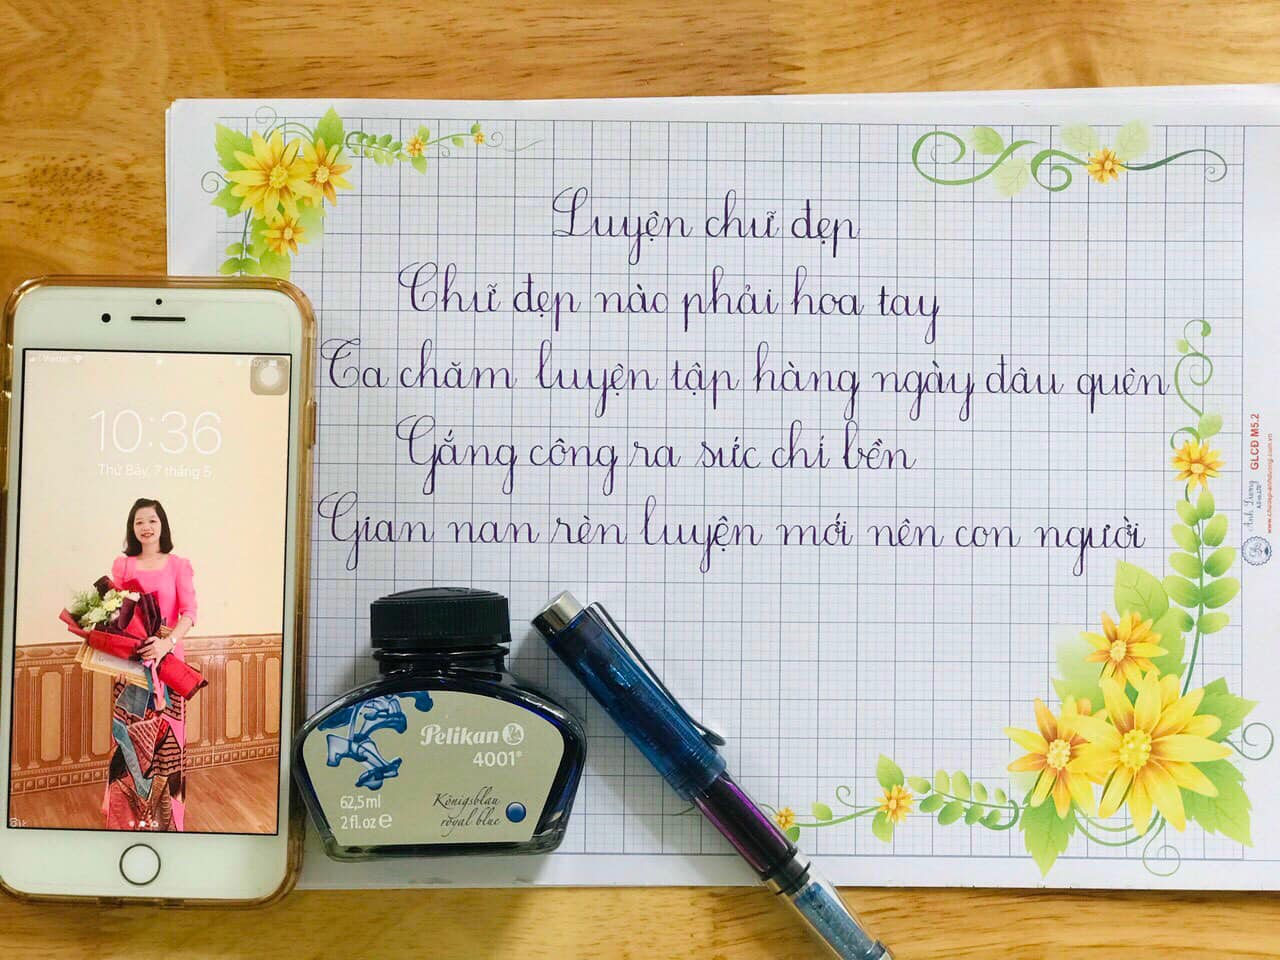 Luyện chữ đẹp
Chữ đẹp nào phải hoa tay
Ta chăm luyện tập hàng ngày đâu quên
Gắng công ra sức chí bền
Gian nan rèn luyện mới nên con người
Viettel
10:36
Thứ Bảy, 7 tháng 5
Pelikan
4001®
62,5 ml
2 fl.oz e
Königsblau
royal blue
GLCĐ M5.2
Anh Dương